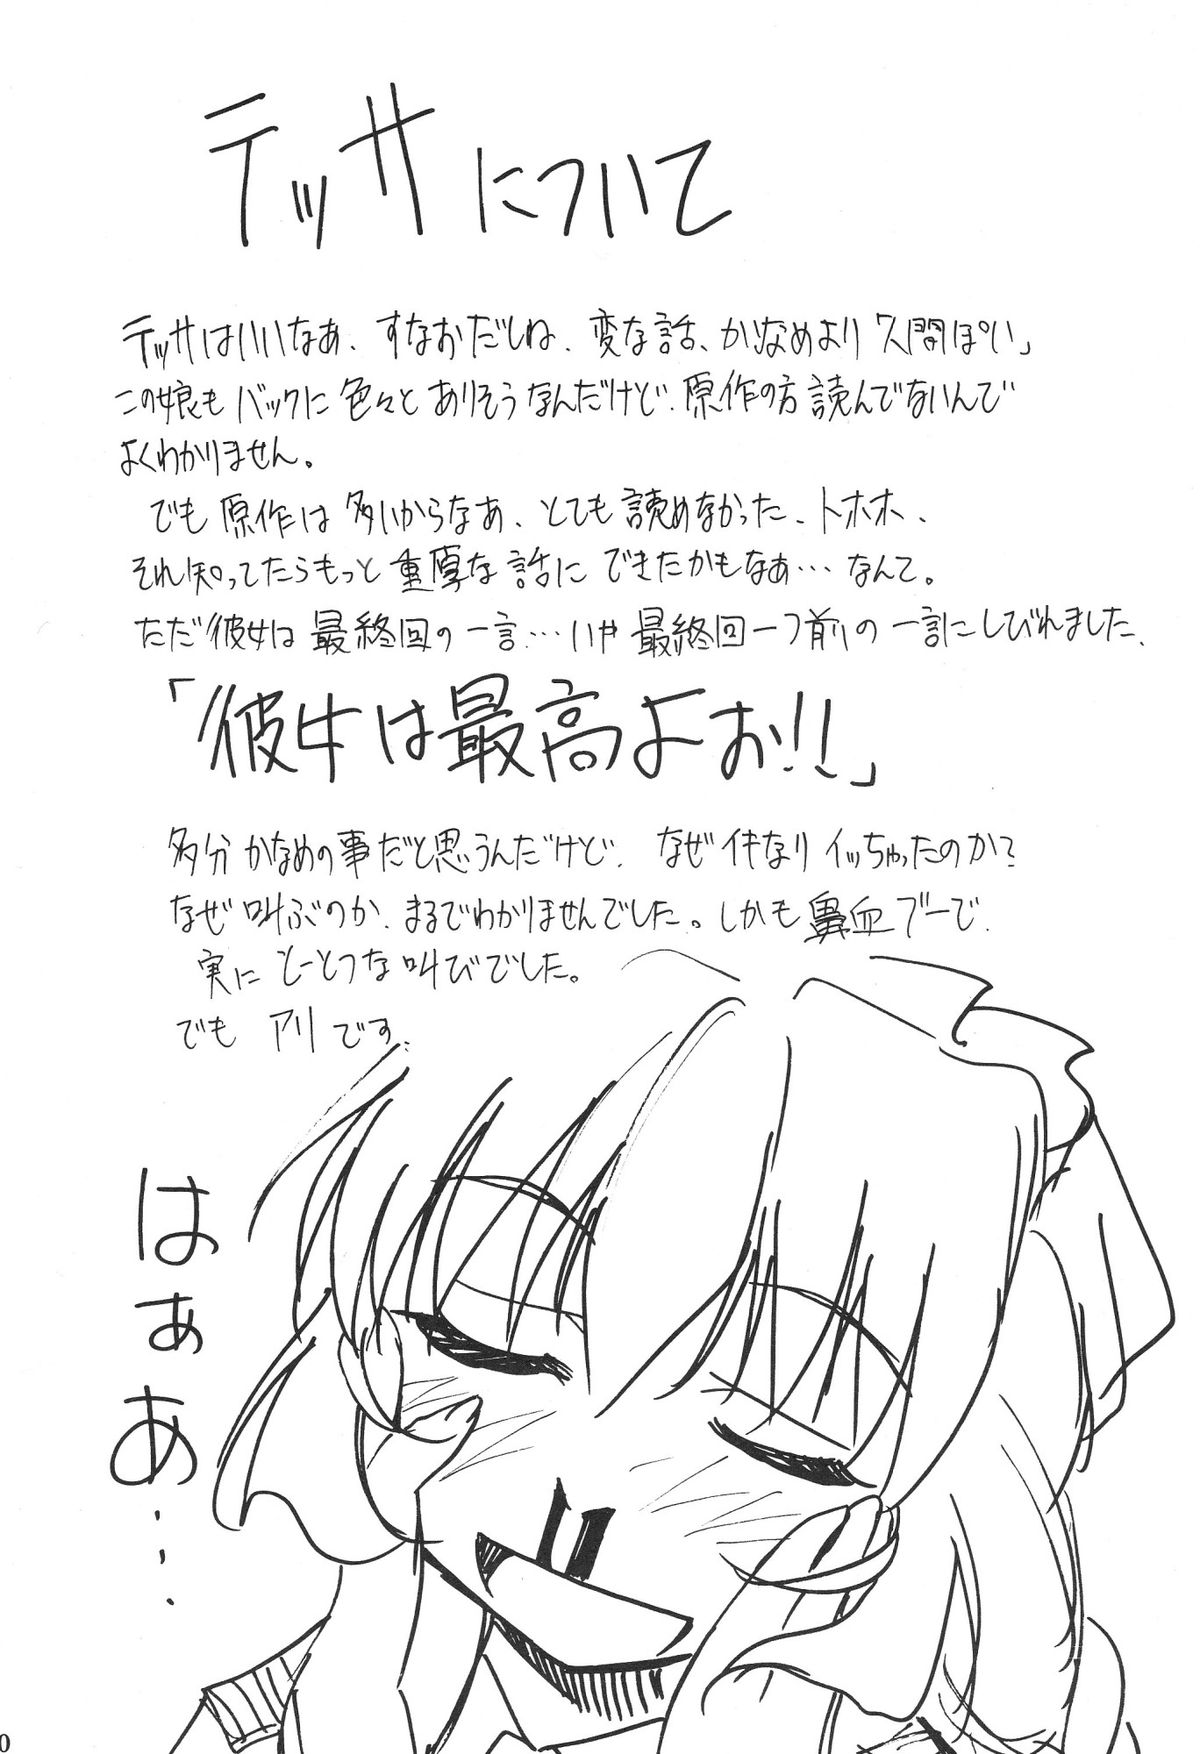 テッサについて
テッサはいいなぁ、すなおだしね、変な話、かなめより人間ぽい」
この娘もバックに色々とありそうなんだけど、原作の方読んでないんで
よくわかりません。
でも原作は多いからなぁ、とても読めなかった、トホホ、
それ知ってたらもっと重厚な話にできたかもなぁ…なんて。
ただ彼女は最終回の一言…いや最終回一つ前の一言にしびれました、
「彼女は最高よぉ!!」
多分かなめの事だと思うんだけど、なぜイキなりイッちゃったのか?
なぜ叫ぶのか、まるでわかりませんでした。しかも鼻血ブーで、
実にとーとつな叫びでした。
でもアリです、
はぁあ…
0